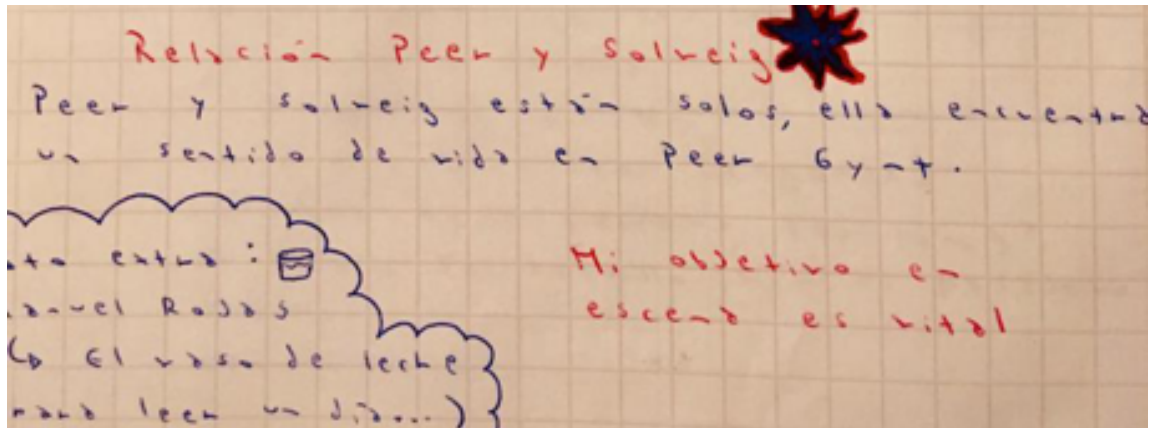 Relación Peer y Solveig
Peer y Solveig están solos, ella encuentra
un sentido de vida en Peer Gynt.
ato extra:
anuel Rojas
↳ El vaso de leche
mana leer un día...)
Mi objetivo en
escena es vital